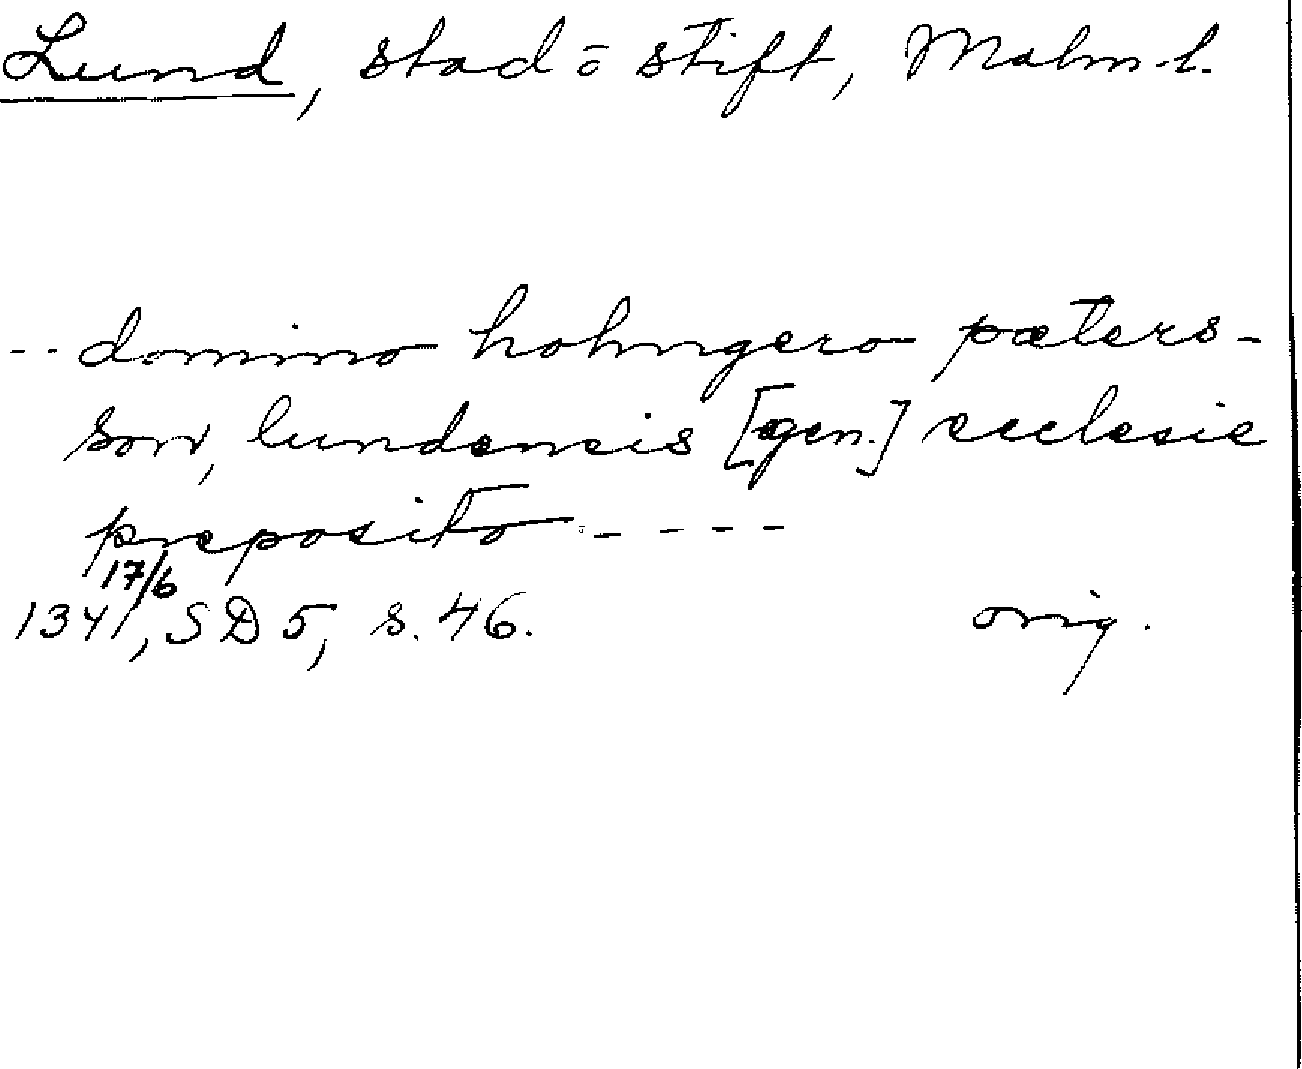 Lund, stad o stift, Malm. l.
-- domino holmgero pæters-
son, lundensis [gen.] ecclesie
preposito - - - -
17/6
1341, SD 5, s. 46. orig.